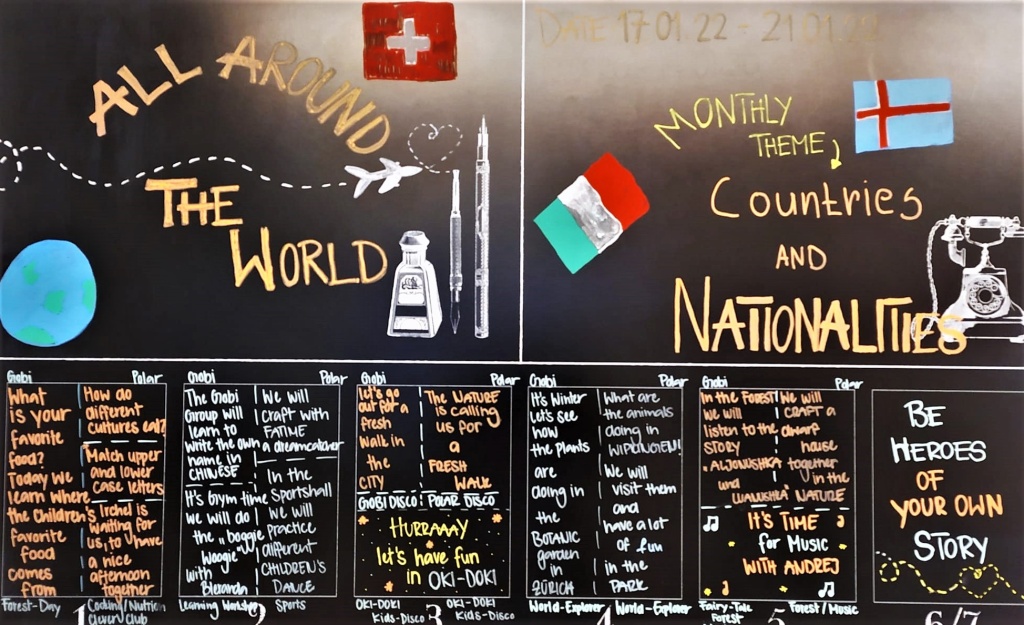 ALL AROUND
THE
WORLD
DATE 17.01.22 - 21.01.22
MONTHLY
THEME
Countries
AND
NATIONALITIES
Gobi
What
is your
favorite
food?
Today we
learn where
the children's
favorite
food
comes
from
Forest-Day
Polar
How do
different
cultures eat?
Match upper
and lower
case letters
Irchel is
waiting for
us, to have
a nice
afternoon
together
Cooking/Nutrition
Clever Club
1
Gobi
The Gobi
Group will
learn to
write the own
name in
CHINESE
It's Gym time
we will do
the "boogie
Woogie"
with
Learning Workshop
Polar
We will
craft with
FATIME
a dreamcatcher
In the
Sportshall
We will
practice
different
CHILDREN'S
DANCE
Sports
2
Gobi
let's go
out for a
fresh
walk in
the
CITY
Polar
The NATURE
is calling
us for
a
FRESH
WALK
GOBI DISCO
POLAR DISCO
HURRAAAY
let's have fun
in OKI-DOKI
OKI-DOKI
Kids-Disco
OKI-DOKI
Kids-Disco
3
Gobi
It's Winter
Let's see
how
the plants
are
doing in
the
BOTANIC
garden
in
ZÜRICH
World-Explorer
Polar
What are
the animals
doing in
We will
visit them
and
have a lot
of fun
in the
PARK
World-Explorer
4
Gobi
In the FOREST
we will
listen to the
STORY
"ALJONUSHKA
und
Polar
We will
CRAFT a
dwarf
house
together
in the
NATURE
IT'S TIME
for Music
WITH ANDREJ
Fairy-Tale
Forest
Forest/Music
5
BE
HEROES
OF
YOUR OWN
STORY
6/7